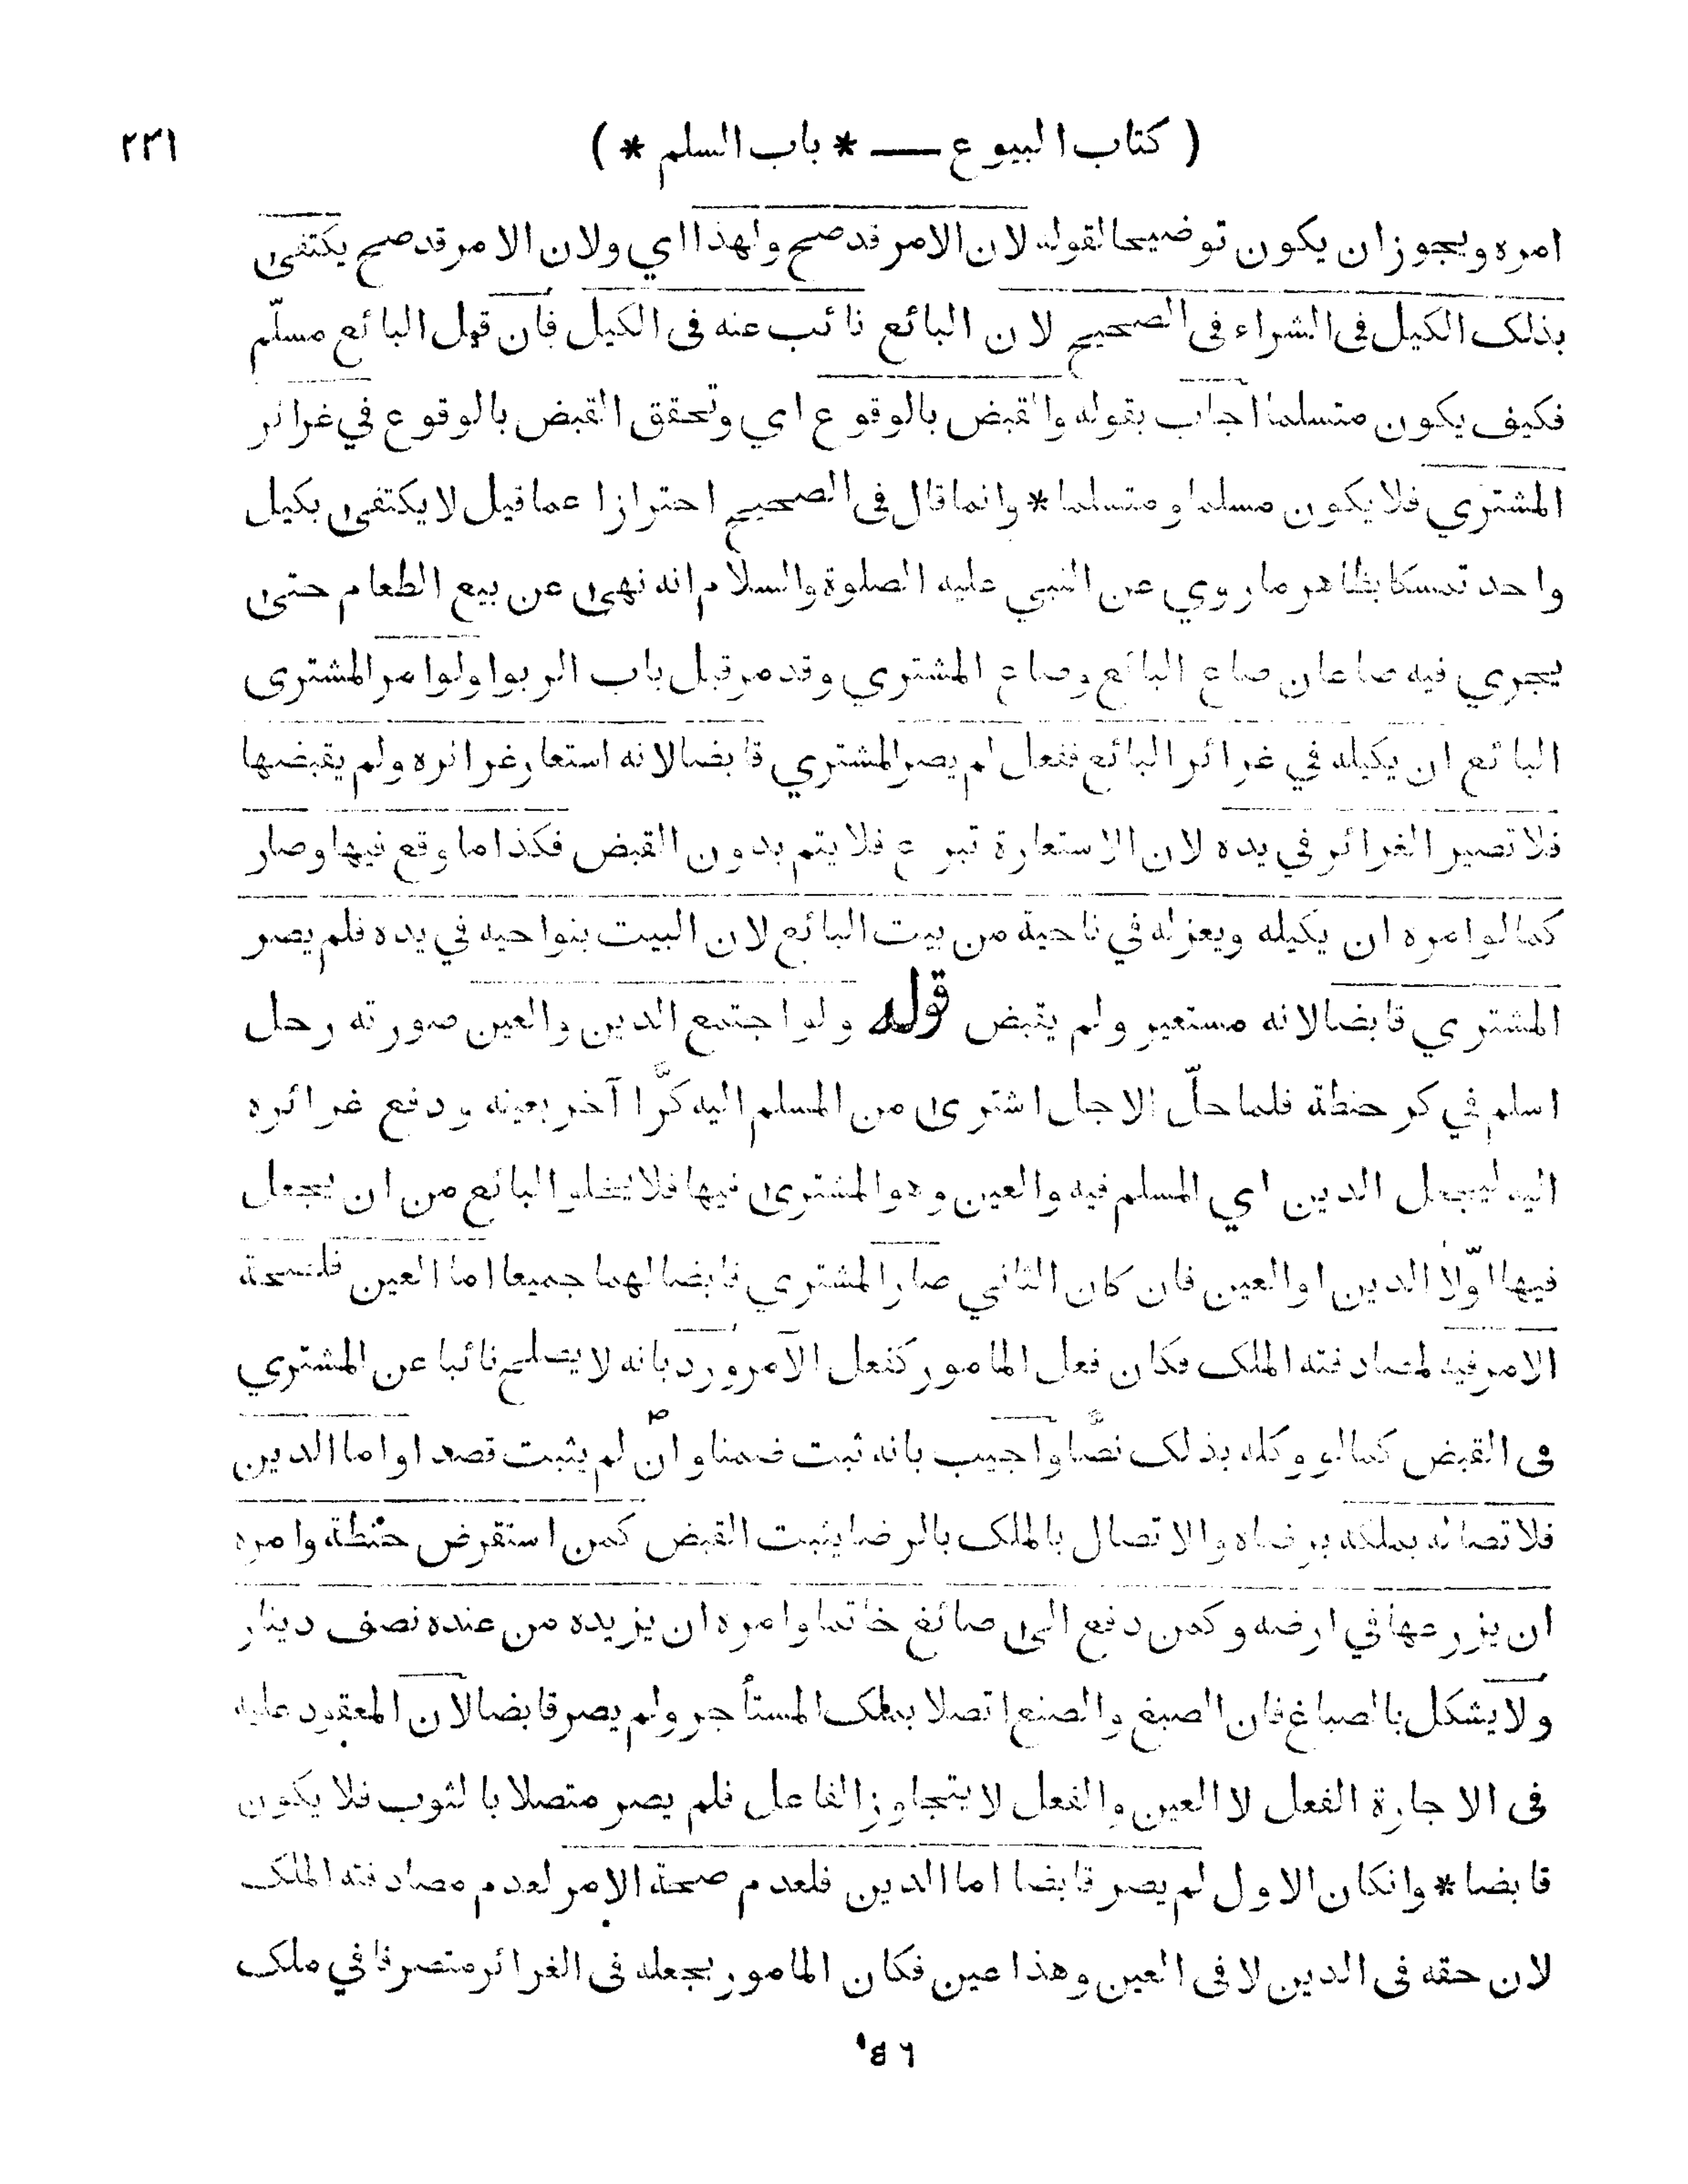 ( كتاب البيوع — * باب السلم * ) ٢٢١
امره ويجوز ان يكون توضيحا لقوله لان الامر قد صح ولهذا اي ولان الامر قد صح يكتفى
بذلك الكيل فى الشراء فى الصحيح لان البائع نائب عنه فى الكيل فان قيل البائع مسلّم
فكيف يكون متسلما اجاب بقوله والقبض بالوقوع اي وتحقق القبض بالوقوع في غرائر
المشتري فلا يكون مسلما ومتسلما * وانما قال فى الصحيح احترازا عما قيل لا يكتفى بكيل
واحد تمسكا بظاهر ما روي عن النبي عليه الصلوة والسلام انه نهى عن بيع الطعام حتى
يجري فيه صاعان صاع البائع وصاع المشتري وقد مر قبل باب الربوا ولوامر المشترى
البائع ان يكيله في غرائر البائع ففعل لم يصر المشتري قابضا لانه استعار غرائره ولم يقبضها
فلا تصير الغرائر في يده لان الاستعارة تبرع فلا يتم بدون القبض فكذا ما وقع فيها وصار
كما لو امره ان يكيله ويعزله في ناحية من بيت البائع لان البيت بنواحيه في يده فلم يصر
المشتري قابضا لانه مستعير ولم يقبض قوله ولو اجتمع الدين والعين صورته رجل
اسلم في كر حنطة فلما حلّ الاجل اشترى من المسلم اليه كرًّا آخر بعينه ودفع غرائره
اليه ليجعل الدين اي المسلم فيه والعين وهو المشترى فيها فلا يخلو البائع من ان يجعل
فيها اوّلا الدين او العين فان كان الثاني صار المشتري قابضا لهما جميعا اما العين فلصحة
الامر فيه لمصادفته الملك فكان فعل المامور كفعل الآمر ورد بانه لا يصلح نائبا عن المشتري
فى القبض كما لو وكله بذلك نصًّا واجيب بانه ثبت ضمنا وان لم يثبت قصدا واما الدين
فلا تصاله بملكه برضاه والاتصال بالملك بالرضا يثبت القبض كمن استقرض حنطة وامره
ان يزرعها في ارضه وكمن دفع الى صائغ خاتما وامره ان يزيده من عنده نصف دينار
ولا يشكل بالصباغ فان الصبغ والصنع اتصلا بملك المستأجر ولم يصر قابضا لان المعقود عليه
فى الاجارة الفعل لا العين والفعل لا يتجاوز الفاعل فلم يصر متصلا بالثوب فلا يكون
قابضا * وانكان الاول لم يصر قابضا اما الدين فلعدم صحة الامر لعدم مصادفته الملك
لان حقه فى الدين لا فى العين وهذا عين فكان المامور بجعله فى الغرائر متصرفا في ملك